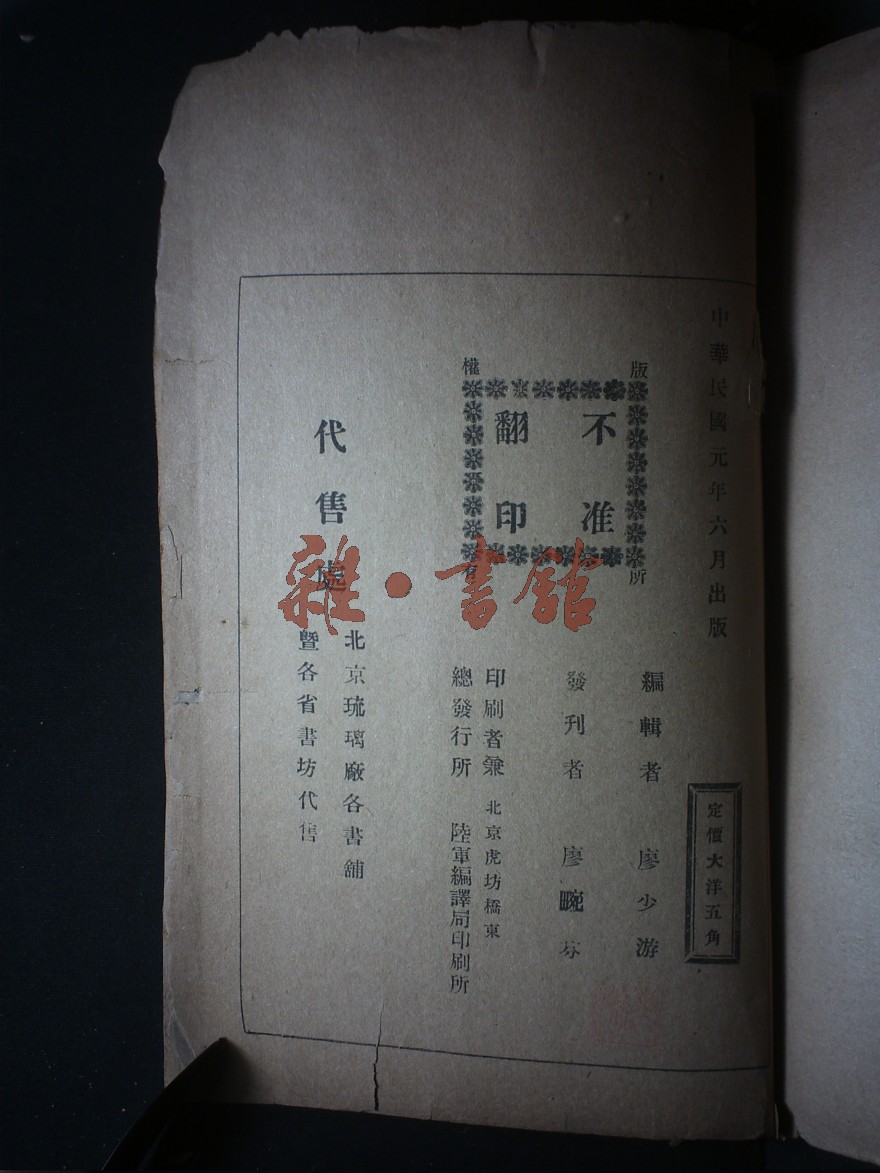 中華民國元年六月出版
定價大洋五角
版權所有
不准
翻印
編輯者 廖少游
發刊者 廖畹芬
印刷者兼 北京虎坊橋東
總發行所 陸軍編譯局印刷所
代售處
北京琉璃廠各書舖
暨各省書坊代售
雜·書館